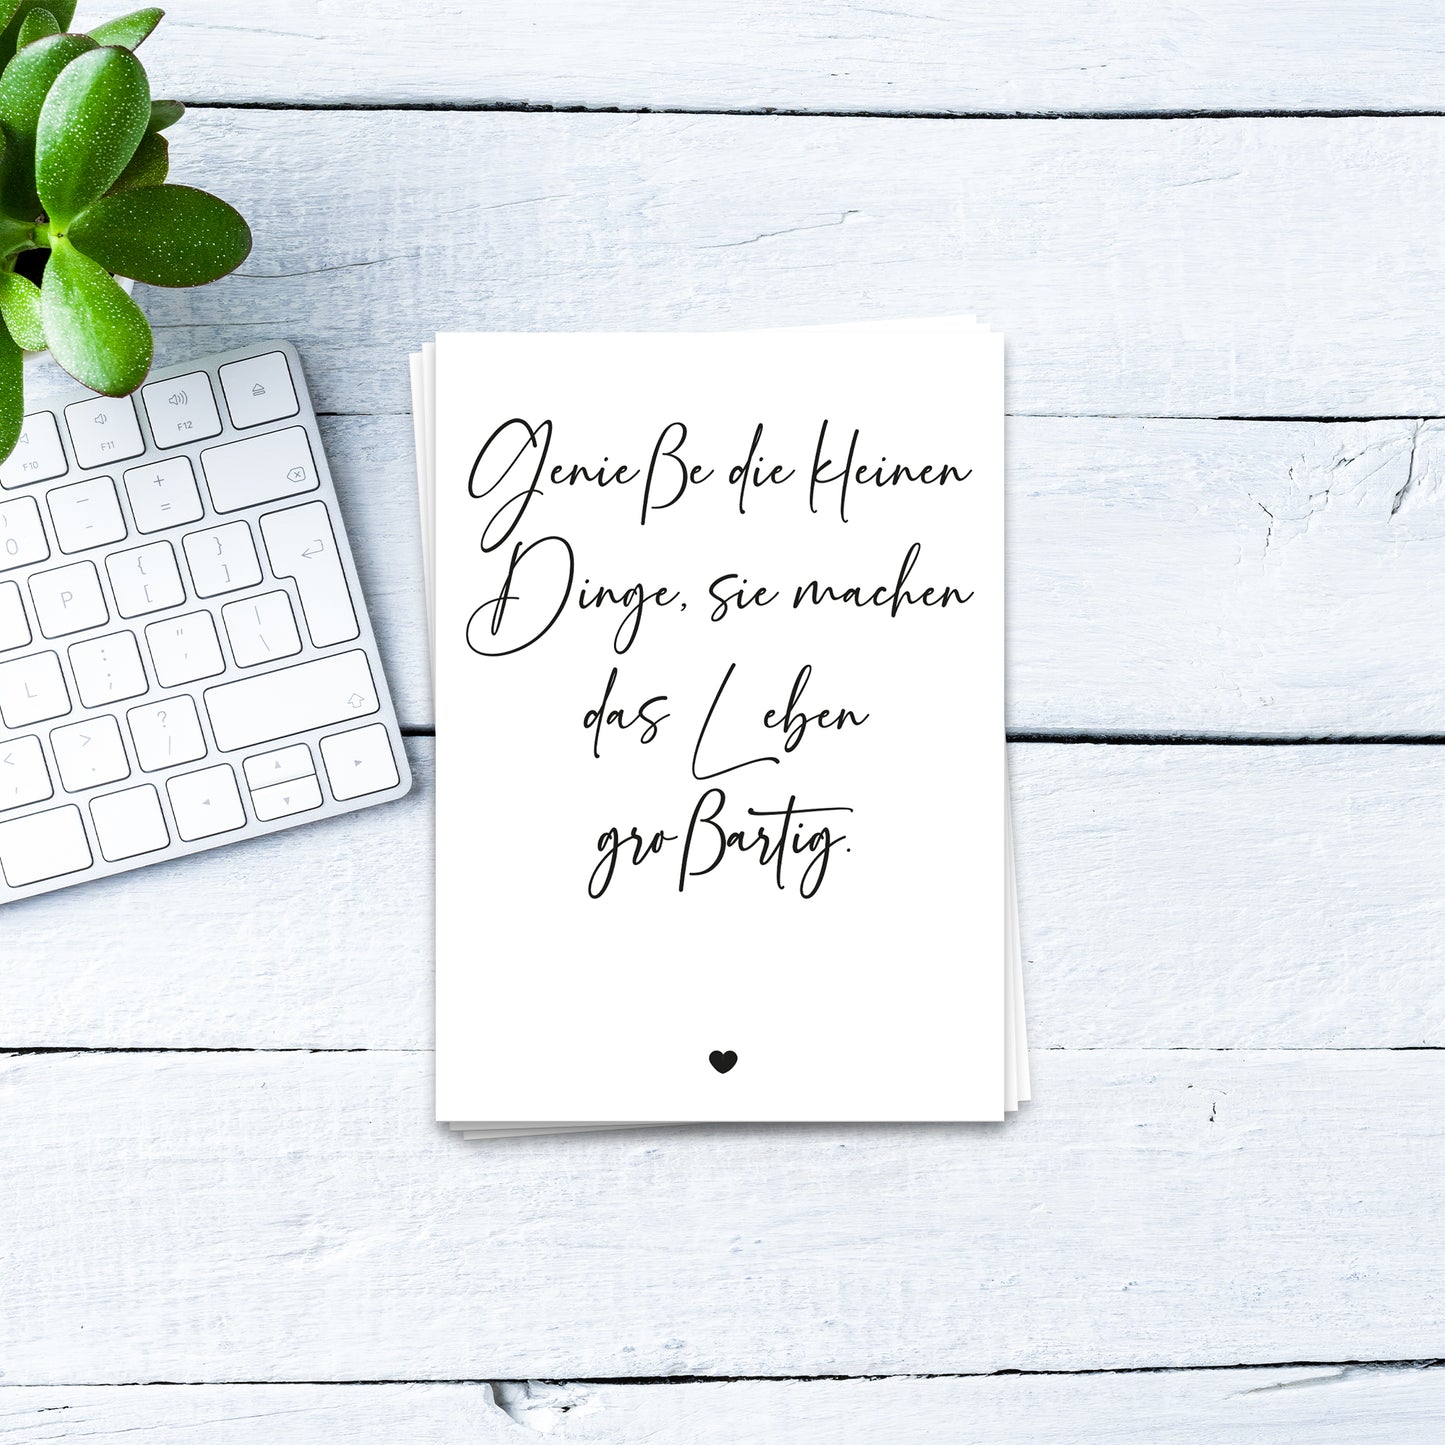 Genieße die kleinen
Dinge, sie machen
das Leben
großartig.
F10
F11
F12
+
=
_
-
)
0
P
{
[
}
]
|
\
L
:
;
"
'
<
,
>
.
?
/